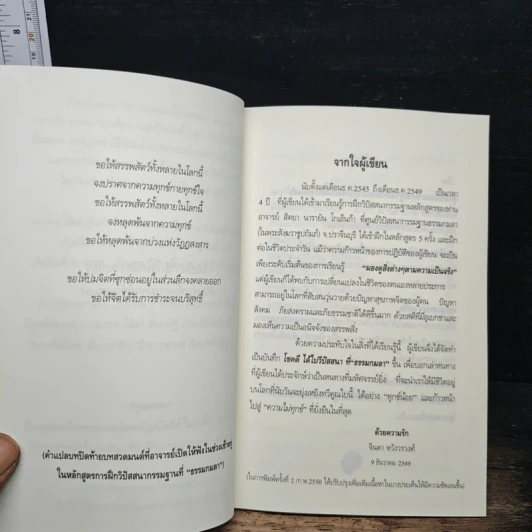 ขอให้สรรพสัตว์ทั้งหลายในโลกนี้
จงปราศจากความทุกข์กายทุกข์ใจ
ขอให้สรรพสัตว์ทั้งหลายในโลกนี้
จงหลุดพ้นจากความทุกข์
ขอให้หลุดพ้นจากบ่วงแห่งวัฏฏสงสาร
ขอให้ปมจิตที่ซุกซ่อนอยู่ในส่วนลึกจงคลายออก
ขอให้จิตได้รับการชำระจนบริสุทธิ์
(คำแปลบทปิดท้ายบทสวดมนต์ที่อาจารย์เปิดให้ฟังในช่วงเช้าตรู่
ในหลักสูตรการฝึกวิปัสสนากรรมฐานที่ "ธรรมกมลา")
จากใจผู้เขียน
นับตั้งแต่เดือนธ.ค.2545 ถึงเดือนธ.ค.2549 เป็นเวลา
4 ปี ที่ผู้เขียนได้เข้ามาเรียนรู้การฝึกวิปัสสนากรรมฐานหลักสูตรของท่าน
อาจารย์ สัตยา นารายัน โกเอ็นก้า ที่ศูนย์วิปัสสนากรรมฐานธรรมกมลา
(ในพระสังฆราชูปถัมภ์) จ.ปราจีนบุรี ได้เข้าฝึกในหลักสูตร 5 ครั้ง และฝึก
ต่อในชีวิตประจำวัน แม้ว่าความก้าวหน้าของการปฏิบัติของผู้เขียน จะเป็น
เพียงระดับเริ่มต้นของการเรียนรู้ "มองดูสิ่งต่างๆตามความเป็นจริง"
แต่ผู้เขียนก็ได้พบกับการเปลี่ยนแปลงในชีวิตของตนเองหลายประการ
สามารถอยู่ในโลกที่สับสนวุ่นวายด้วยปัญหาสุขภาพจิตของผู้คน ปัญหา
สังคม ภัยสงครามและภัยธรรมชาติได้ดีขึ้นมาก ด้วยสติที่มีอุเบกขาและ
มองเห็นความเป็นอนิจจังของสรรพสิ่ง
ด้วยความประทับใจในสิ่งที่ได้เรียนรู้นี้ ผู้เขียนจึงได้จัดทำ
เป็นบันทึก โชคดี ได้ไปวิปัสสนา ที่ "ธรรมกมลา" ขึ้น เพื่อบอกเล่าหนทาง
ที่ผู้เขียนได้ประจักษ์ว่าเป็นหนทางที่มหัศจรรย์ยิ่ง ที่จะนำเราให้มีชีวิตอยู่
บนโลกที่นับวันจะยุ่งเหยิงทวีคูณใบนี้ ได้อย่าง "ทุกข์น้อย" และก้าวหน้า
ไปสู่ "ความไม่ทุกข์" ที่ยั่งยืนในที่สุด
ด้วยความรัก
จินดา หวังวรวงศ์
9 ธันวาคม 2549
(ในการพิมพ์ครั้งที่ 2 ก.พ.2550 ได้ปรับปรุงเพิ่มเติมเนื้อหาในบางประเด็นให้มีความชัดเจนขึ้น)
8
20
21